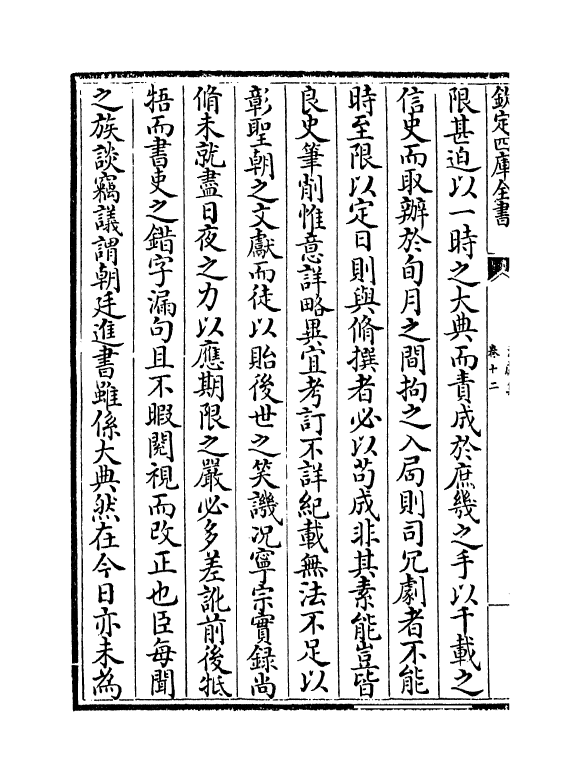 欽定四庫全書
卷十二
限甚迫以一時之大典而責成於庶幾之手以千載之
信史而取辦於旬月之間拘之入局則司冗劇者不能
時至限以定日則與脩撰者必以茍成非其素能豈皆
良史筆削惟意詳略異宜考訂不詳紀載無法不足以
彰聖朝之文獻而徒以貽後世之笑譏况寧宗實録尚
脩未就盡日夜之力以應期限之嚴必多差訛前後牴
牾而書吏之錯字漏句且不暇閱視而改正也臣每聞
之族談竊議謂朝廷進書雖係大典然在今日亦未為